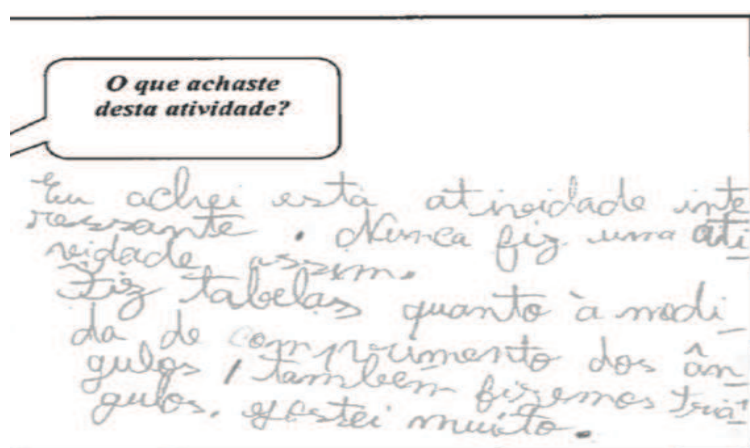 O que achaste
desta atividade?
Eu achei esta atividade inte
ressante. Nunca fiz uma ati_
vidade assim.
Fiz tabelas quanto à medi_
da de comprimento dos ân_
gulos, também fizemos triâ_
gulos. gostei muito.